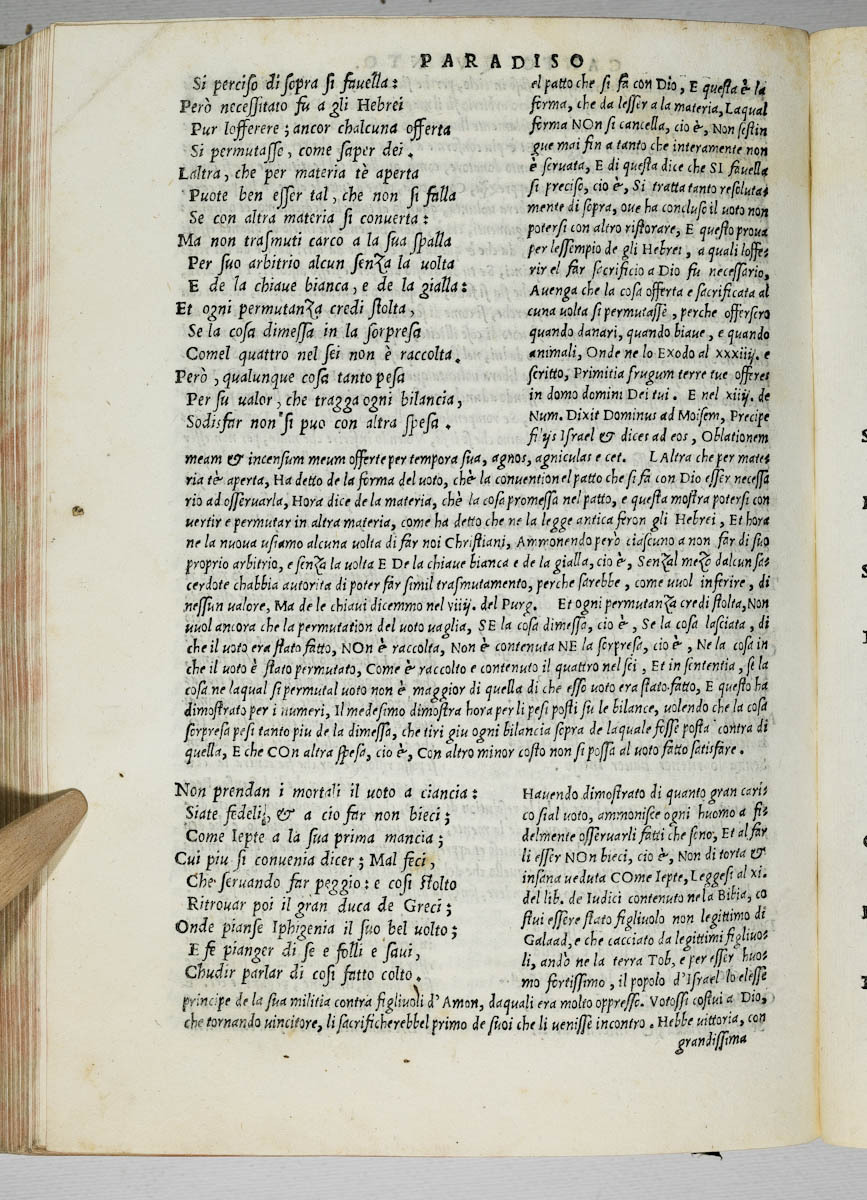 PARADISO
Si perciso di sopra si fauella:
Però necessitato fu a gli Hebrei
Pur lofferere; ancor chalcuna offerta
Si permutasse, come saper dei.
Laltra, che per materia tè aperta
Puote ben esser tal, che non si falla
Se con altra materia si conuerta:
Ma non trasmuti carco a la sua spalla
Per suo arbitrio alcun senza la uolta
E de la chiaue bianca, e de la gialla:
Et ogni permutanza credi stolta,
Se la cosa dimessa in la sorpresa
Comel quattro nel sei non è raccolta.
Però, qualunque cosa tanto pesa
Per su ualor, che tragga ogni bilancia,
Sodisfar non si puo con altra spesa.
el patto che si fa con Dio, E questa è la
forma, che da lesser a la materia, Laqual
forma NOn si cancella, cio è, Non sestin
gue mai fin a tanto che interamente non
è seruata, E di questa dice che SI fauella
si preciso, cio è, Si tratta tanto resoluta-
mente di sopra, oue ha concluso il uoto non
potersi con altro ristorare, E questo proua
per lessempio de gli Hebrei, a quali loffe-
rir el far sacrificio a Dio fu necessario,
Auenga che la cosa offerta e sacrificata al
cuna uolta si permutasse, perche offersero
quando danari, quando biaue, e quando
animali, Onde ne lo Exodo al xxxiiij. e
scritto, Primitia frugum terre tue offeres
in domo domini Dei tui. E nel xiiij. de
Num. Dixit Dominus ad Moisem, Precipe
filijs Israel & dices ad eos, Oblationem
meam & incensum meum offerte per tempora sua, agnos, agniculas e cet. LAltra che per mate-
ria tè aperta, Ha detto de la forma del uoto, chè la conuention el patto che si fa con Dio esser necessa
rio ad osseruarla, Hora dice de la materia, chè la cosa promessa nel patto, e questa mostra potersi con
uertir e permutar in altra materia, come ha detto che ne la legge antica feron gli Hebrei, Et hora
ne la nuoua usiamo alcuna uolta di far noi Christiani, Ammonendo però ciascuno a non far di suo
proprio arbitrio, e senza la uolta E De la chiaue bianca e de la gialla, cio è, Senzal mezo dalcun sa-
cerdote chabbia autorita di poter far simil trasmutamento, perche sarebbe, come uuol inferire, di
nessun ualore, Ma de le chiaui dicemmo nel viiij. del Purg. Et ogni permutanza credi stolta, Non
uuol ancora che la permutation del uoto uaglia, SE la cosa dimessa, cio è, Se la cosa lasciata, di
che il uoto era stato fatto, NOn è raccolta, Non è contenuta NE la sorpresa, cio è, Ne la cosa in
che il uoto è stato permutato, Come è raccolto e contenuto il quattro nel sei, Et in sententia, se la
cosa ne laqual si permutal uoto non è maggior di quella di che esso uoto era stato fatto, E questo ha
dimostrato per i numeri, Il medesimo dimostra hora per li pesi posti su le bilance, uolendo che la cosa
sorpresa pesi tanto piu de la dimessa, che tiri giu ogni bilancia sopra de laquale fosse posta contra di
quella, E che COn altra spesa, cio è, Con altro minor costo non si possa al uoto fatto satisfare.
Non prendan i mortali il uoto a ciancia:
Siate fedeli, & a cio far non bieci;
Come Iepte a la sua prima mancia;
Cui piu si conuenia dicer; Mal feci,
Che seruando far peggio: e cosi stolto
Ritrouar poi il gran duca de Greci;
Onde pianse Iphigenia il suo bel uolto;
E fe pianger di se e folli e saui,
Chudir parlar di cosi fatto colto.
Hauendo dimostrato di quanto gran cari-
co sial uoto, ammonisce ogni huomo a fi-
delmente osseruarli fatti che seno, Et al far
li esser NOn bieci, cio è, Non di torta &
insana ueduta COme Iepte, Leggesi al xi.
del lib. de Iudici contenuto ne la Bibia, co
stui essere stato figliuolo non legittimo di
Galaad, e che cacciato da legittimi figliuo-
li, andò ne la terra Tob, e per esser huo-
mo fortissimo, il popolo d'Israel lo elesse
principe de la sua militia contra figliuoli d'Amon, daquali era molto oppresso. Votossi costui a Dio,
che tornando uincitore, li sacrificherebbel primo de suoi che li uenisse incontro. Hebbe uittoria, con
grandissima